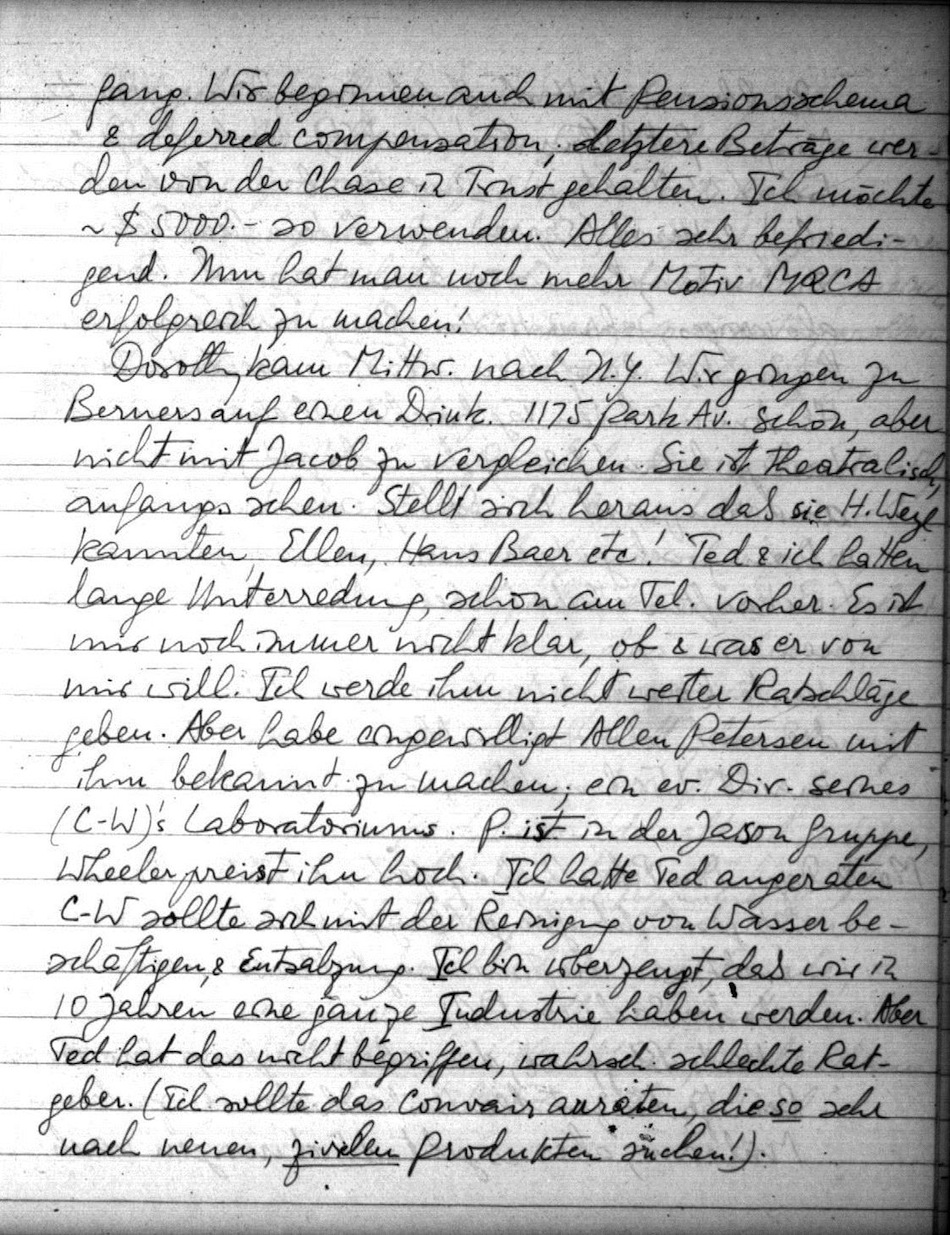 gang. Wir beginnen auch mit Pensionsschema
& deferred compensation, letztere Beträge wer-
den von der Chase in Trust gehalten. Ich möchte
~ $ 5000.- so verwenden. Alles sehr befriedi-
gend. Nun hat man noch mehr Motiv MRCA
erfolgreich zu machen!
Dorothy kam Mittw. nach N.Y. Wir gingen zu
Berners auf einen Drink. 1175 Park Av. Schön, aber
nicht mit Jacob zu vergleichen. Sie ist theatralisch,
anfangs schen. Stellt sich heraus das sie H. Weyl
kannten, Ellen, Hans Baer etc! Ted & ich hatten
lange Unterredung, schon am Tel. vorher. Es ist
mir noch immer nicht klar, ob & was er von
mir will. Ich werde ihm nicht weiter Ratschläge
geben. Aber habe eingewilligt Allen Petersen mit
ihm bekannt zu machen, ein ev. Dir. seines
(C-W)'s Laboratoriums. P. ist in der Jason Gruppe,
Wheeler preist ihn hoch. Ich hatte Ted angeraten
C-W sollte sich mit der Reinigng von Wasser be-
schäftigen, & Entsalzung. Ich bin überzeugt, das wir in
10 Jahren eine ganze Industrie haben werden. Aber
Ted hat das nicht begriffen, wahrsch. schlechte Rat-
geber. (Ich sollte das Convair anraten, die so sehr
nach neuen, zivilen Produkten suchen!).